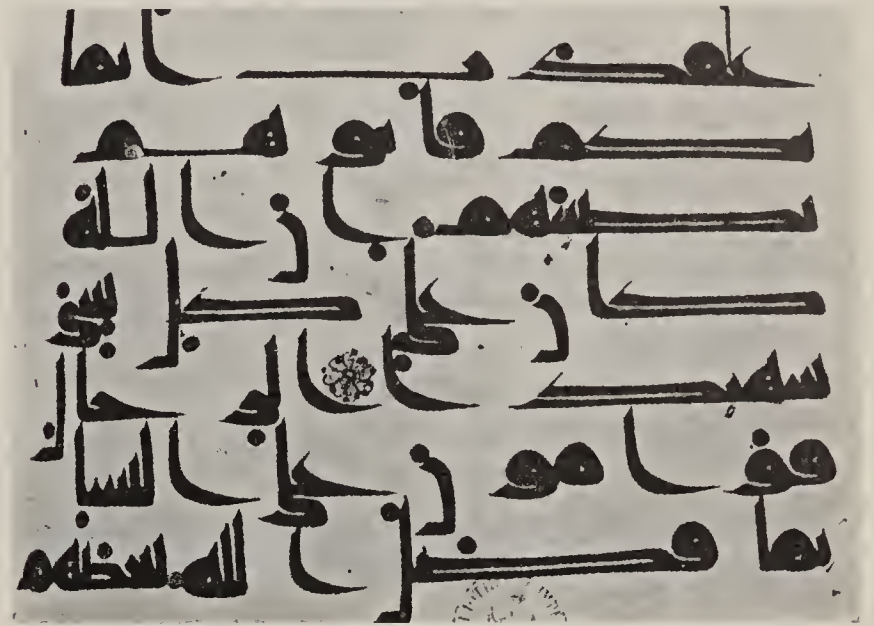 عقدت ايما
نكم فاتوهم
نصيبهم ان الله
كان على كل شى
شهيدا الرجال
قوامون على النسا
بما فضل الله بعضهم